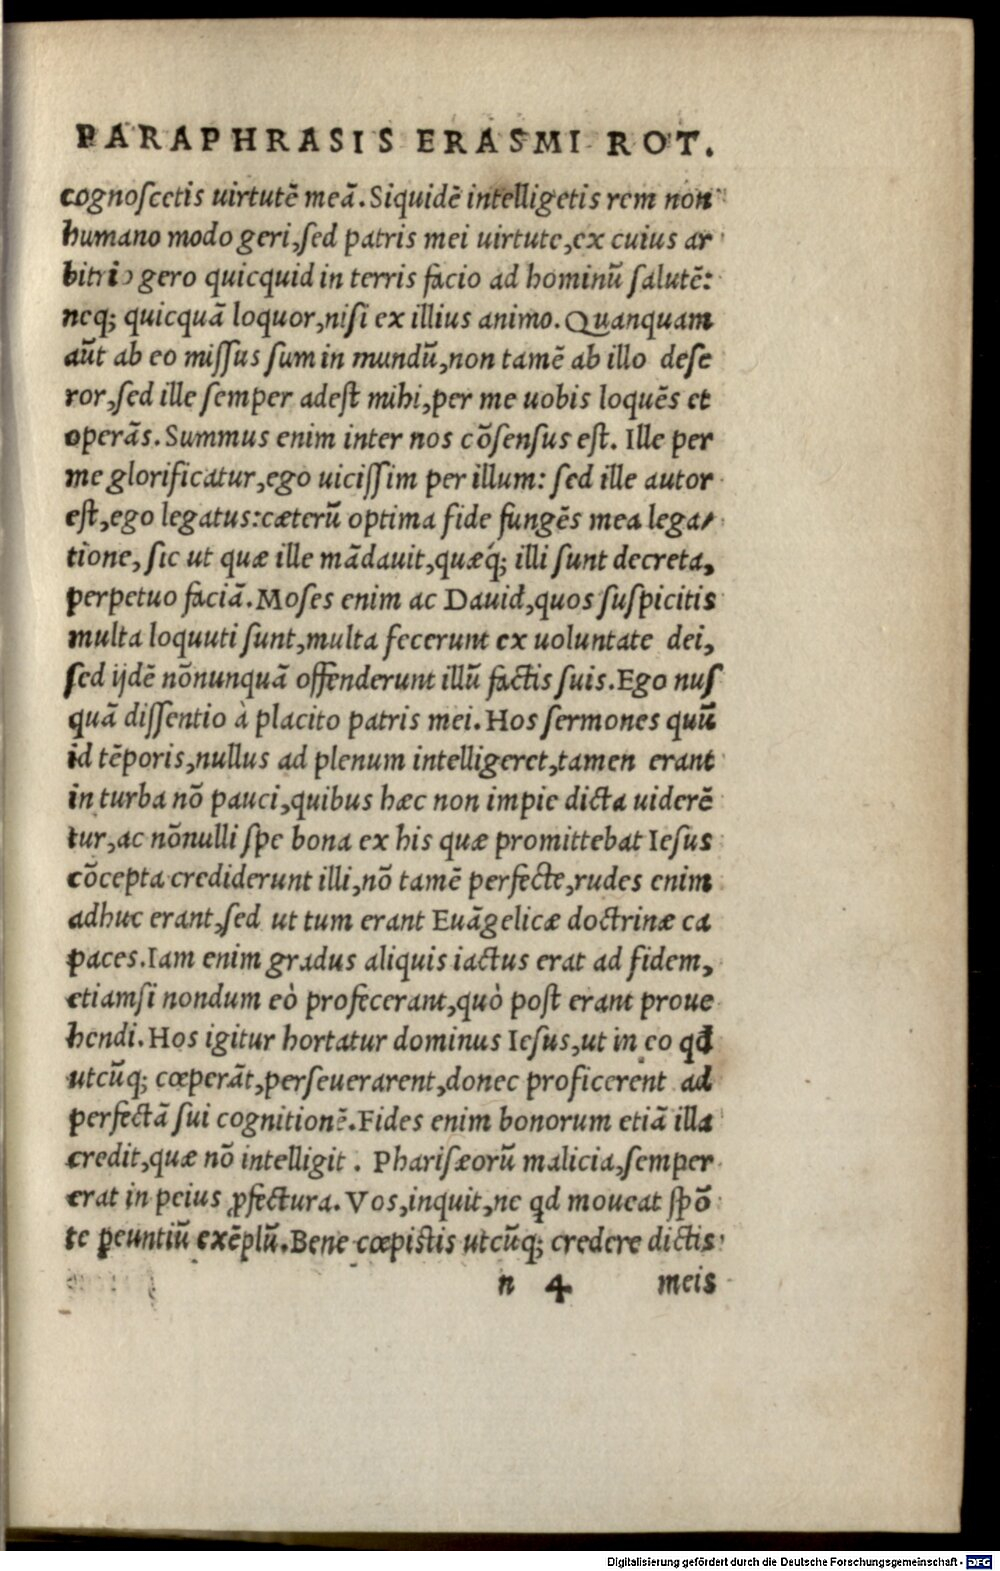 PARAPHRASIS ERASMI ROT.
cognoſcetis uirtutē meā. Siquidē intelligetis rem non
humano modo geri, ſed patris mei uirtute, ex cuius ar
bitrio gero quicquid in terris facio ad hominū ſalutē:
neq; quicquā loquor, niſi ex illius animo. Quanquam
aūt ab eo miſſus ſum in mundū, non tamē ab illo deſe
ror, ſed ille ſemper adeſt mihi, per me uobis loquēs et
operās. Summus enim inter nos cōſenſus eſt. Ille per
me glorificatur, ego uiciſſim per illum: ſed ille autor
eſt, ego legatus: cæterū optima fide fungēs mea lega-
tione, ſic ut quæ ille mādauit, quæq; illi ſunt decreta,
perpetuo faciā. Moſes enim ac Dauid, quos ſuſpicitis
multa loquuti ſunt, multa fecerunt ex uoluntate dei,
ſed ijdē nōnunquā offenderunt illū factis ſuis. Ego nuſ
quā diſſentio à placito patris mei. Hos ſermones quū
id tēporis, nullus ad plenum intelligeret, tamen erant
in turba nō pauci, quibus hæc non impie dicta uiderē
tur, ac nōnulli ſpe bona ex his quæ promittebat Ieſus
cōcepta crediderunt illi, nō tamē perfecte, rudes enim
adhuc erant, ſed ut tum erant Euāgelicæ doctrinæ ca
paces. Iam enim gradus aliquis iactus erat ad fidem,
etiamſi nondum eò profecerant, quò poſt erant proue
hendi. Hos igitur hortatur dominus Ieſus, ut in eo qđ
utcūq; cœperāt, perſeuerarent, donec proficerent ad
perfectā ſui cognitionē. Fides enim bonorum etiā illa
credit, quæ nō intelligit. Phariſæorū malicia, ſemper
erat in peius ꝓfectura. Vos, inquit, ne qd moueat ſpō
te ꝑeuntiū exēplū. Bene cœpiſtis utcūq; credere dictis
n 4 meis
Digitalisierung gefördert durch die Deutsche Forschungsgemeinschaft - DFG